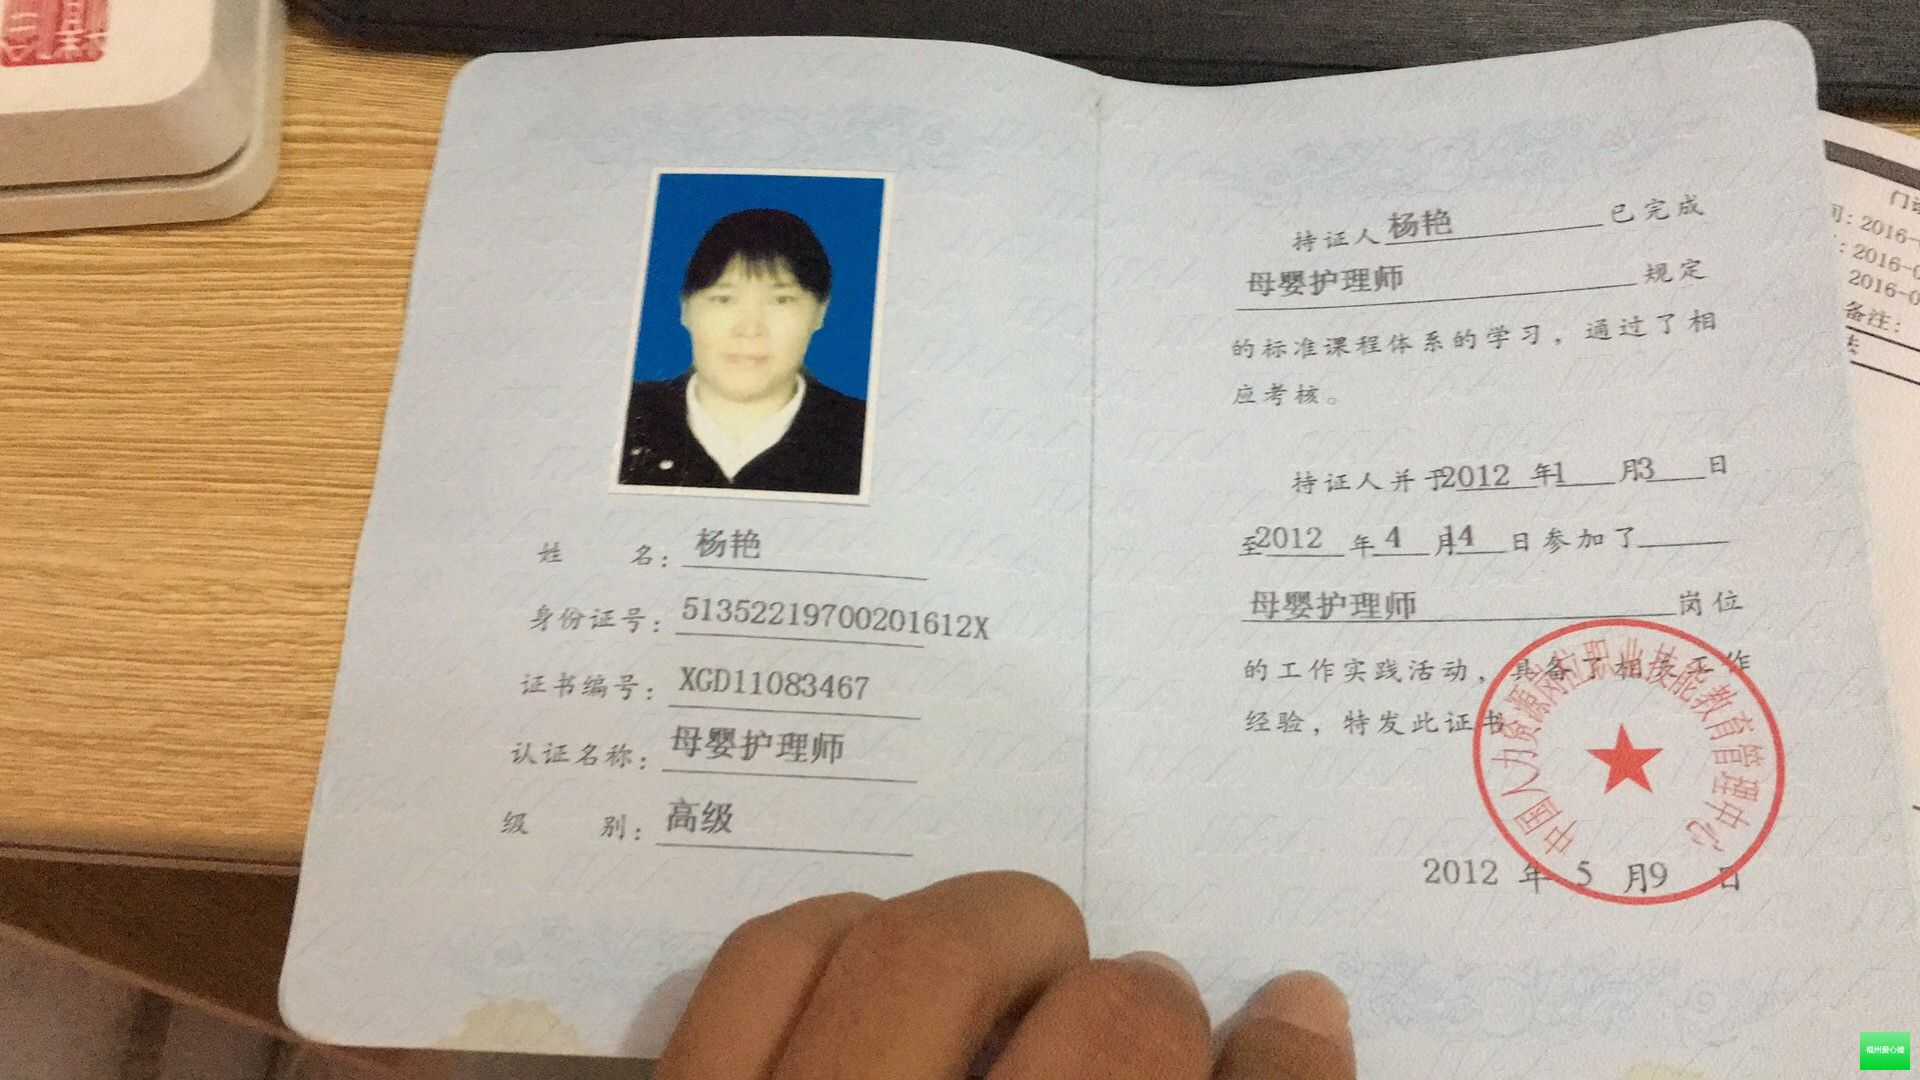 姓 名：杨艳
身份证号：51352219700201612X
证书编号：XGD11083467
认证名称：母婴护理师
级 别：高级
持证人杨艳已完成
母婴护理师规定
的标准课程体系的学习，通过了相
应考核。
持证人并于2012年1月3日
至2012年4月14日参加了
母婴护理师岗位
的工作实践活动，具备了相应工作
经验，特发此证书
中国人力资源网校职业技能教育管理中心
2012年5月9日
2016-
2016-0
2016-0
备注：
福州爱心嫂